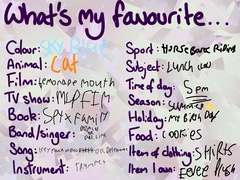 What's my favourite...
Colour: SKY Blue
Animal: Cat
Film: Lemonade mouth
TV show: MLP FIM
Book: SPY x FAMILY
Band/singer:
Song:
Instrument: TRUMPET
Sport: HORSE BACK RIDING
Subject: Lunch
Time of day: 5 PM
Season: SUMMER
Holiday: MY BIRTHDAY
Food: COOKIES
Item of clothing: SHIRTS
Item I own: EEVEE PLUSH